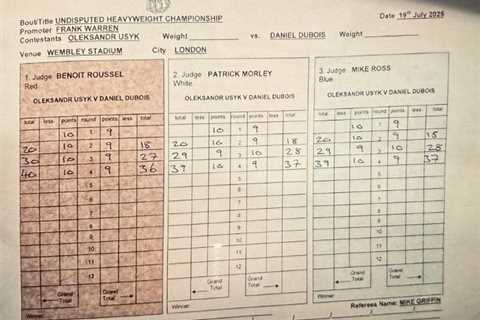 Bout/Title UNDISPUTED HEAVYWEIGHT CHAMPIONSHIP
Date 19th July 2025
Promoter FRANK WARREN
Contestants OLEKSANDR USYK Weight vs. DANIEL DUBOIS Weight
Venue WEMBLEY STADIUM City LONDON
1. Judge BENOIT ROUSSEL
Red
OLEKSANDR USYK V DANIEL DUBOIS
total less points round points less total
10 1 9
20 10 2 9 18
30 10 3 9 27
40 10 4 9 36
5
6
7
8
9
10
11
12
Grand Total
Grand Total
Winner:
2. Judge PATRICK MORLEY
White
OLEKSANDR USYK V DANIEL DUBOIS
total less points round points less total
10 1 9
20 10 2 9 18
29 9 3 10 28
39 10 4 9 37
5
6
7
8
9
10
11
12
Grand Total
Grand Total
Winner:
3. Judge MIKE ROSS
Blue
OLEKSANDR USYK V DANIEL DUBOIS
total less points round points less total
10 1 9
20 10 2 9 18
29 9 3 10 28
39 10 4 9 37
5
6
7
8
9
10
11
12
Grand Total
Grand Total
Winner:
Referees Name: MIKE GRIFFIN